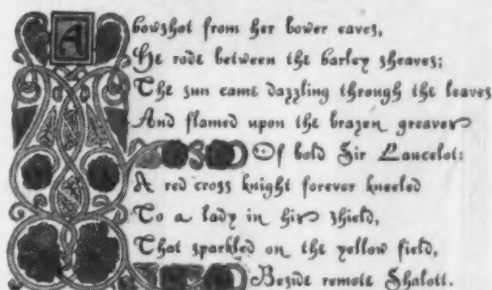 A bowshot from her bower eaves,
He rode between the barley sheaves;
The sun came dazzling through the leaves
And flamed upon the brazen greaves
Of bold Sir Lancelot:
A red cross knight forever kneeled
To a lady in his shield,
That sparkled on the yellow field,
Beside remote Shalott.